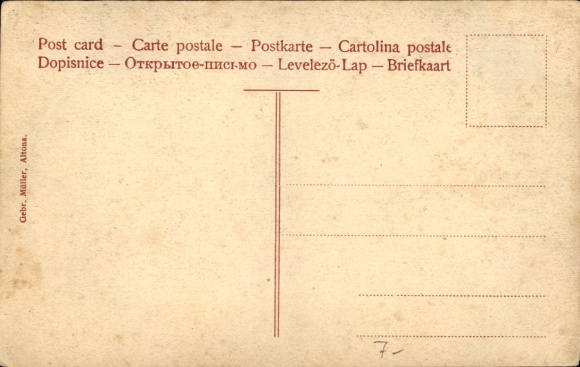 Post card – Carte postale – Postkarte – Cartolina postale
Dopisnice – Открытое-письмо – Levelezö-Lap – Briefkaart
Gebr. Müller, Altona.
7–